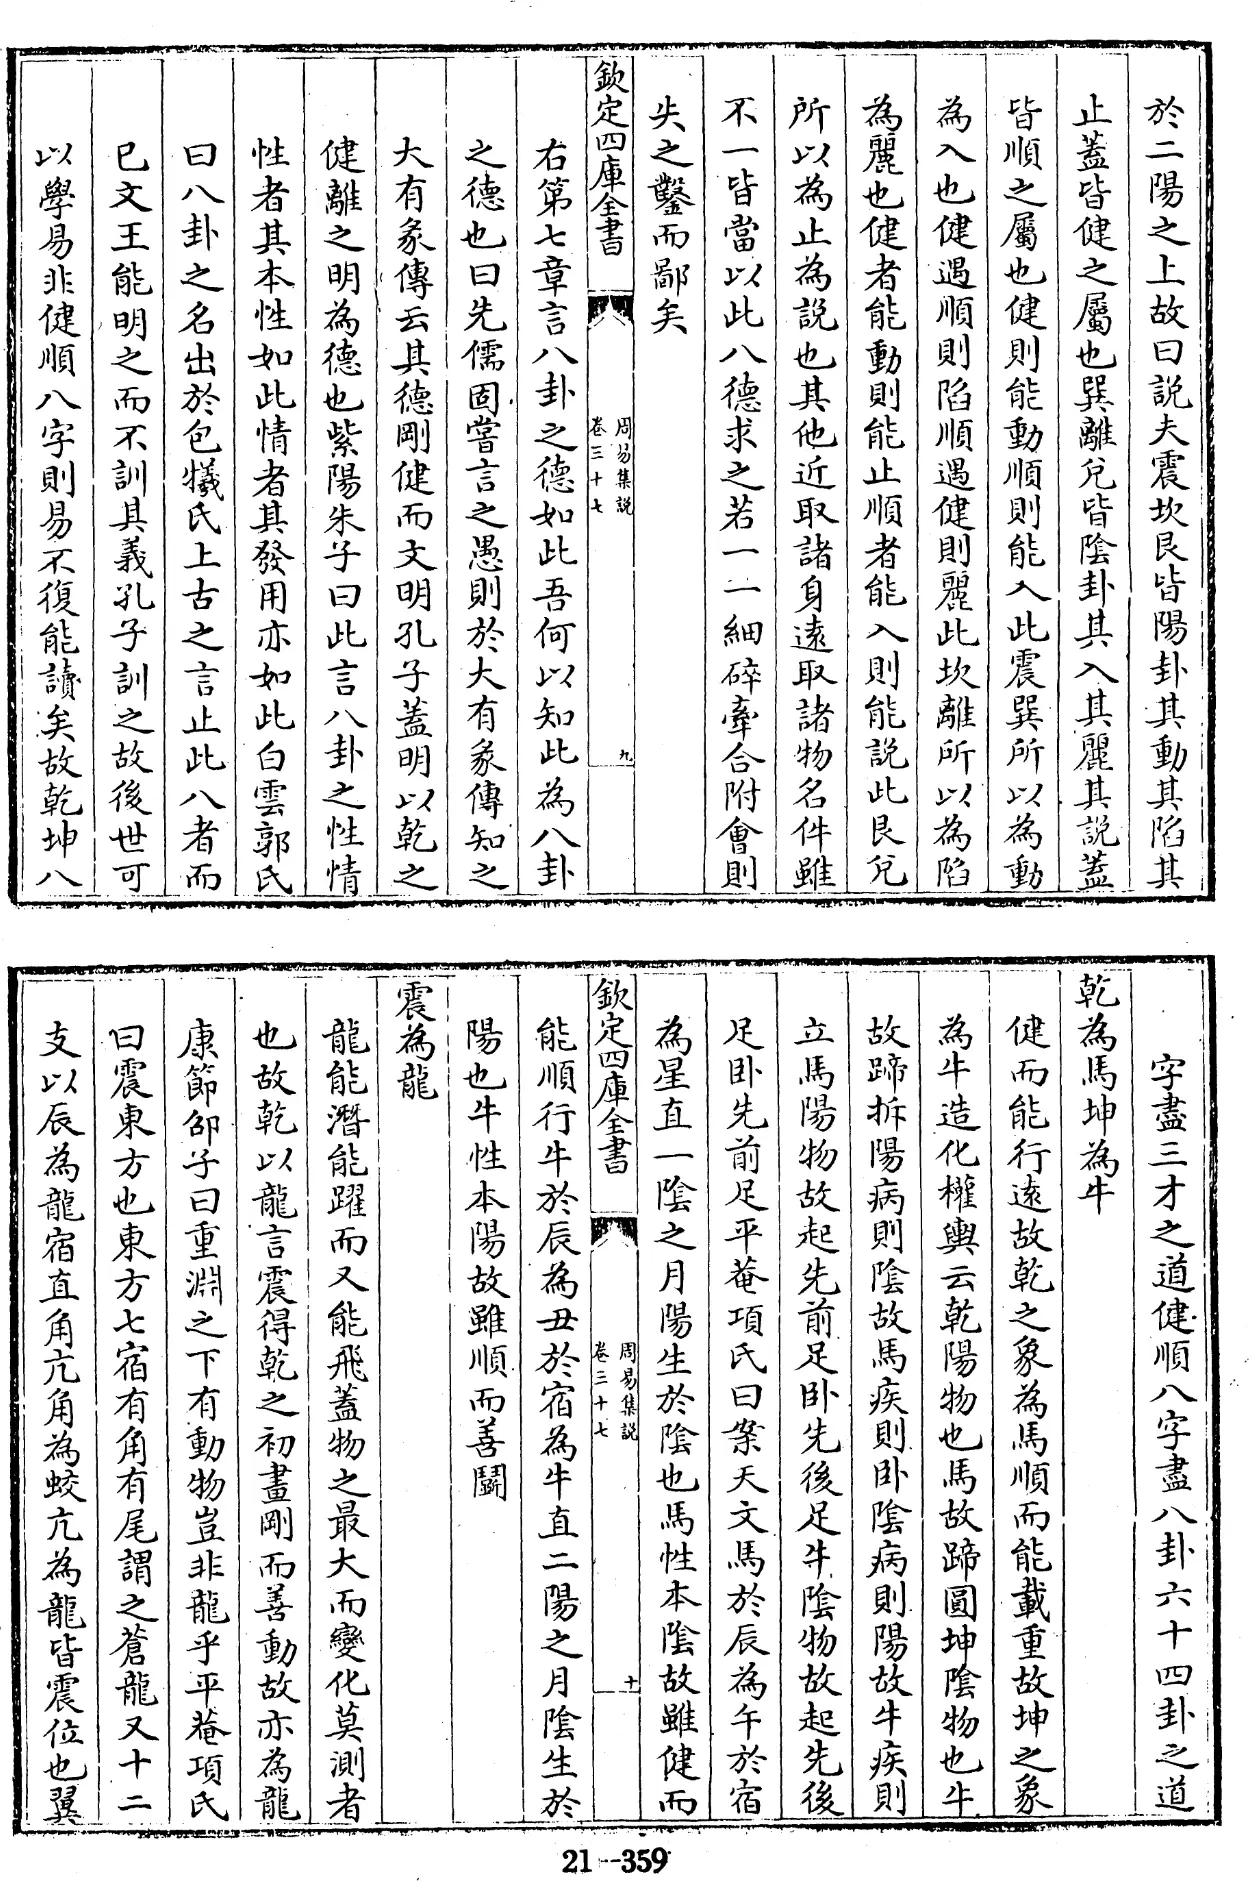 於二陽之上故曰説夫震坎艮皆陽卦其動其陷其
止蓋皆健之屬也巽離兌皆陰卦其入其麗其説蓋
皆順之屬也健則能動順則能入此震巽所以為動
為入也健遇順則陷順遇健則麗此坎離所以為陷
為麗也健者能動則能止順者能入則能説此艮兌
所以為止為説也其他近取諸身遠取諸物名件雖
不一皆當以此八德求之若一一細碎牽合附會則
失之鑿而鄙矣
欽定四庫全書
周易集説
卷三十七
九
右第七章言八卦之德如此吾何以知此為八卦
之德也曰先儒固嘗言之愚則於大有彖傳知之
大有彖傳云其德剛健而文明孔子蓋明以乾之
健離之明為德也紫陽朱子曰此言八卦之性情
性者其本性如此情者其發用亦如此白雲郭氏
曰八卦之名出於包犧氏上古之言止此八者而
已文王能明之而不訓其義孔子訓之故後世可
以學易非健順八字則易不復能讀矣故乾坤八
字盡三才之道健順八字盡八卦六十四卦之道
乾為馬坤為牛
健而能行遠故乾之象為馬順而能載重故坤之象
為牛造化權輿云乾陽物也馬故蹄圓坤陰物也牛
故蹄拆陽病則陰故馬疾則卧陰病則陽故牛疾則
立馬陽物故起先前足卧先後足牛陰物故起先後
足卧先前足平菴項氏曰案天文馬於辰為午於宿
為星直一陰之月陽生於陰也馬性本陰故雖健而
欽定四庫全書
周易集説
卷三十七
十
能順行牛於辰為丑於宿為牛直二陽之月陰生於
陽也牛性本陽故雖順而善鬭
震為龍
龍能潛能躍而又能飛蓋物之最大而變化莫測者
也故乾以龍言震得乾之初畫剛而善動故亦為龍
康節邵子曰重淵之下有動物豈非龍乎平菴項氏
曰震東方也東方七宿有角有尾謂之蒼龍又十二
支以辰為龍宿直角亢角為蛟亢為龍皆震位也翼
21-359